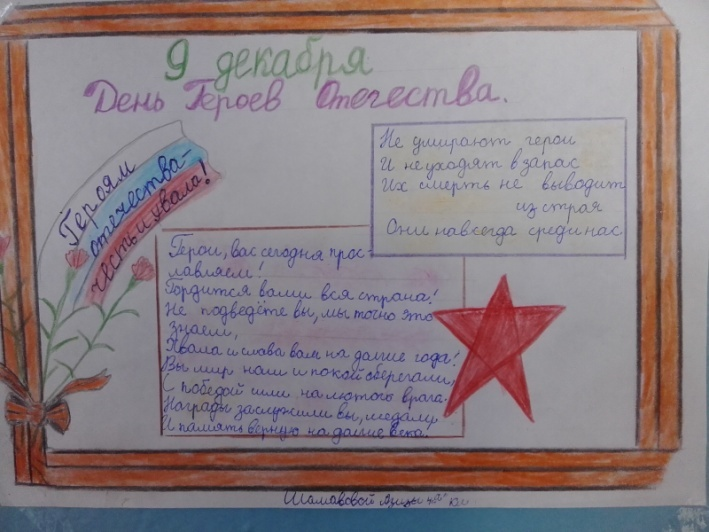 9 декабря
День Героев Отечества.
Героям
отечества-
честь и хвала!
Не умирают герои
И не уходят в запас
Их смерть не выводит
из строя
Они навсегда среди нас
Герои, вас сегодня прос-
лавляем!
Гордится вами вся страна!
Не подведёте вы, мы точно это
знаем,
Хвала и слава вам на долгие года!
Вы мир наш и покой сберегали,
С победой шли на лютого врага.
Награды заслужили вы, медали
И память верную на долгие века.